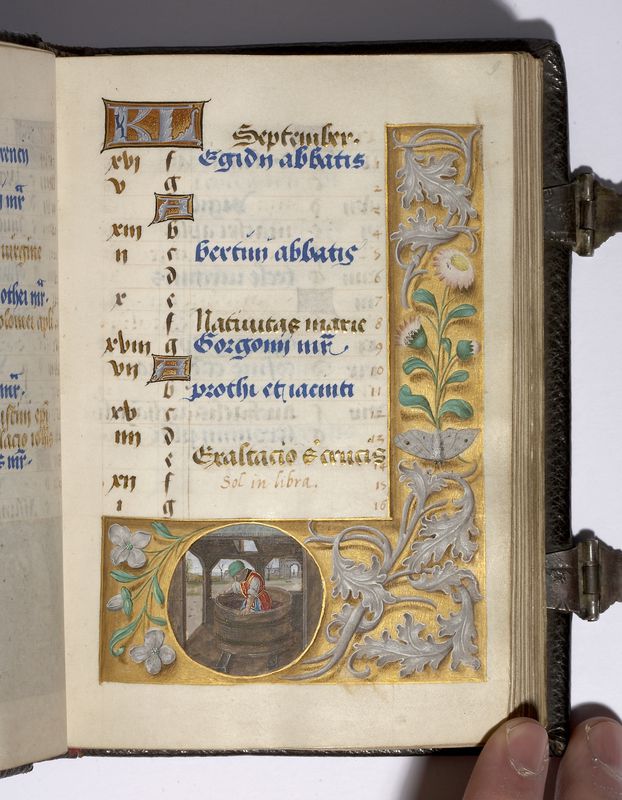 9
KL September.
xvi f Egidii abbatis 1
v g 2
A 3
xiii b 4
ii c bertini abbatis 5
d 6
x e 7
f Nativitas marie 8
xviii g Gorgonii mr̃ 9
vii A 10
b prothi et iacinti 11
xv c 12
iiii d 13
e Exaltacio s̃ crucis
xii f Sol in libra. 15
i g 16